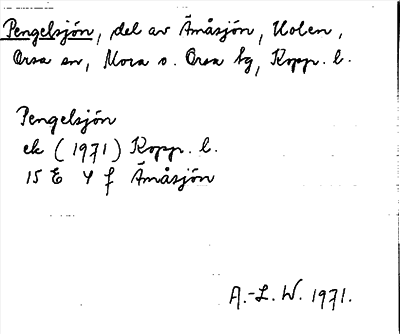 Pengelsjön, del av Ämåsjön, Holen,
Orsa sn, Mora o. Orsa tg, Kopp. l.
Pengelsjön
ek (1971) Kopp. l.
15 E 4 f Ämåsjön
A.-L. W. 1971.